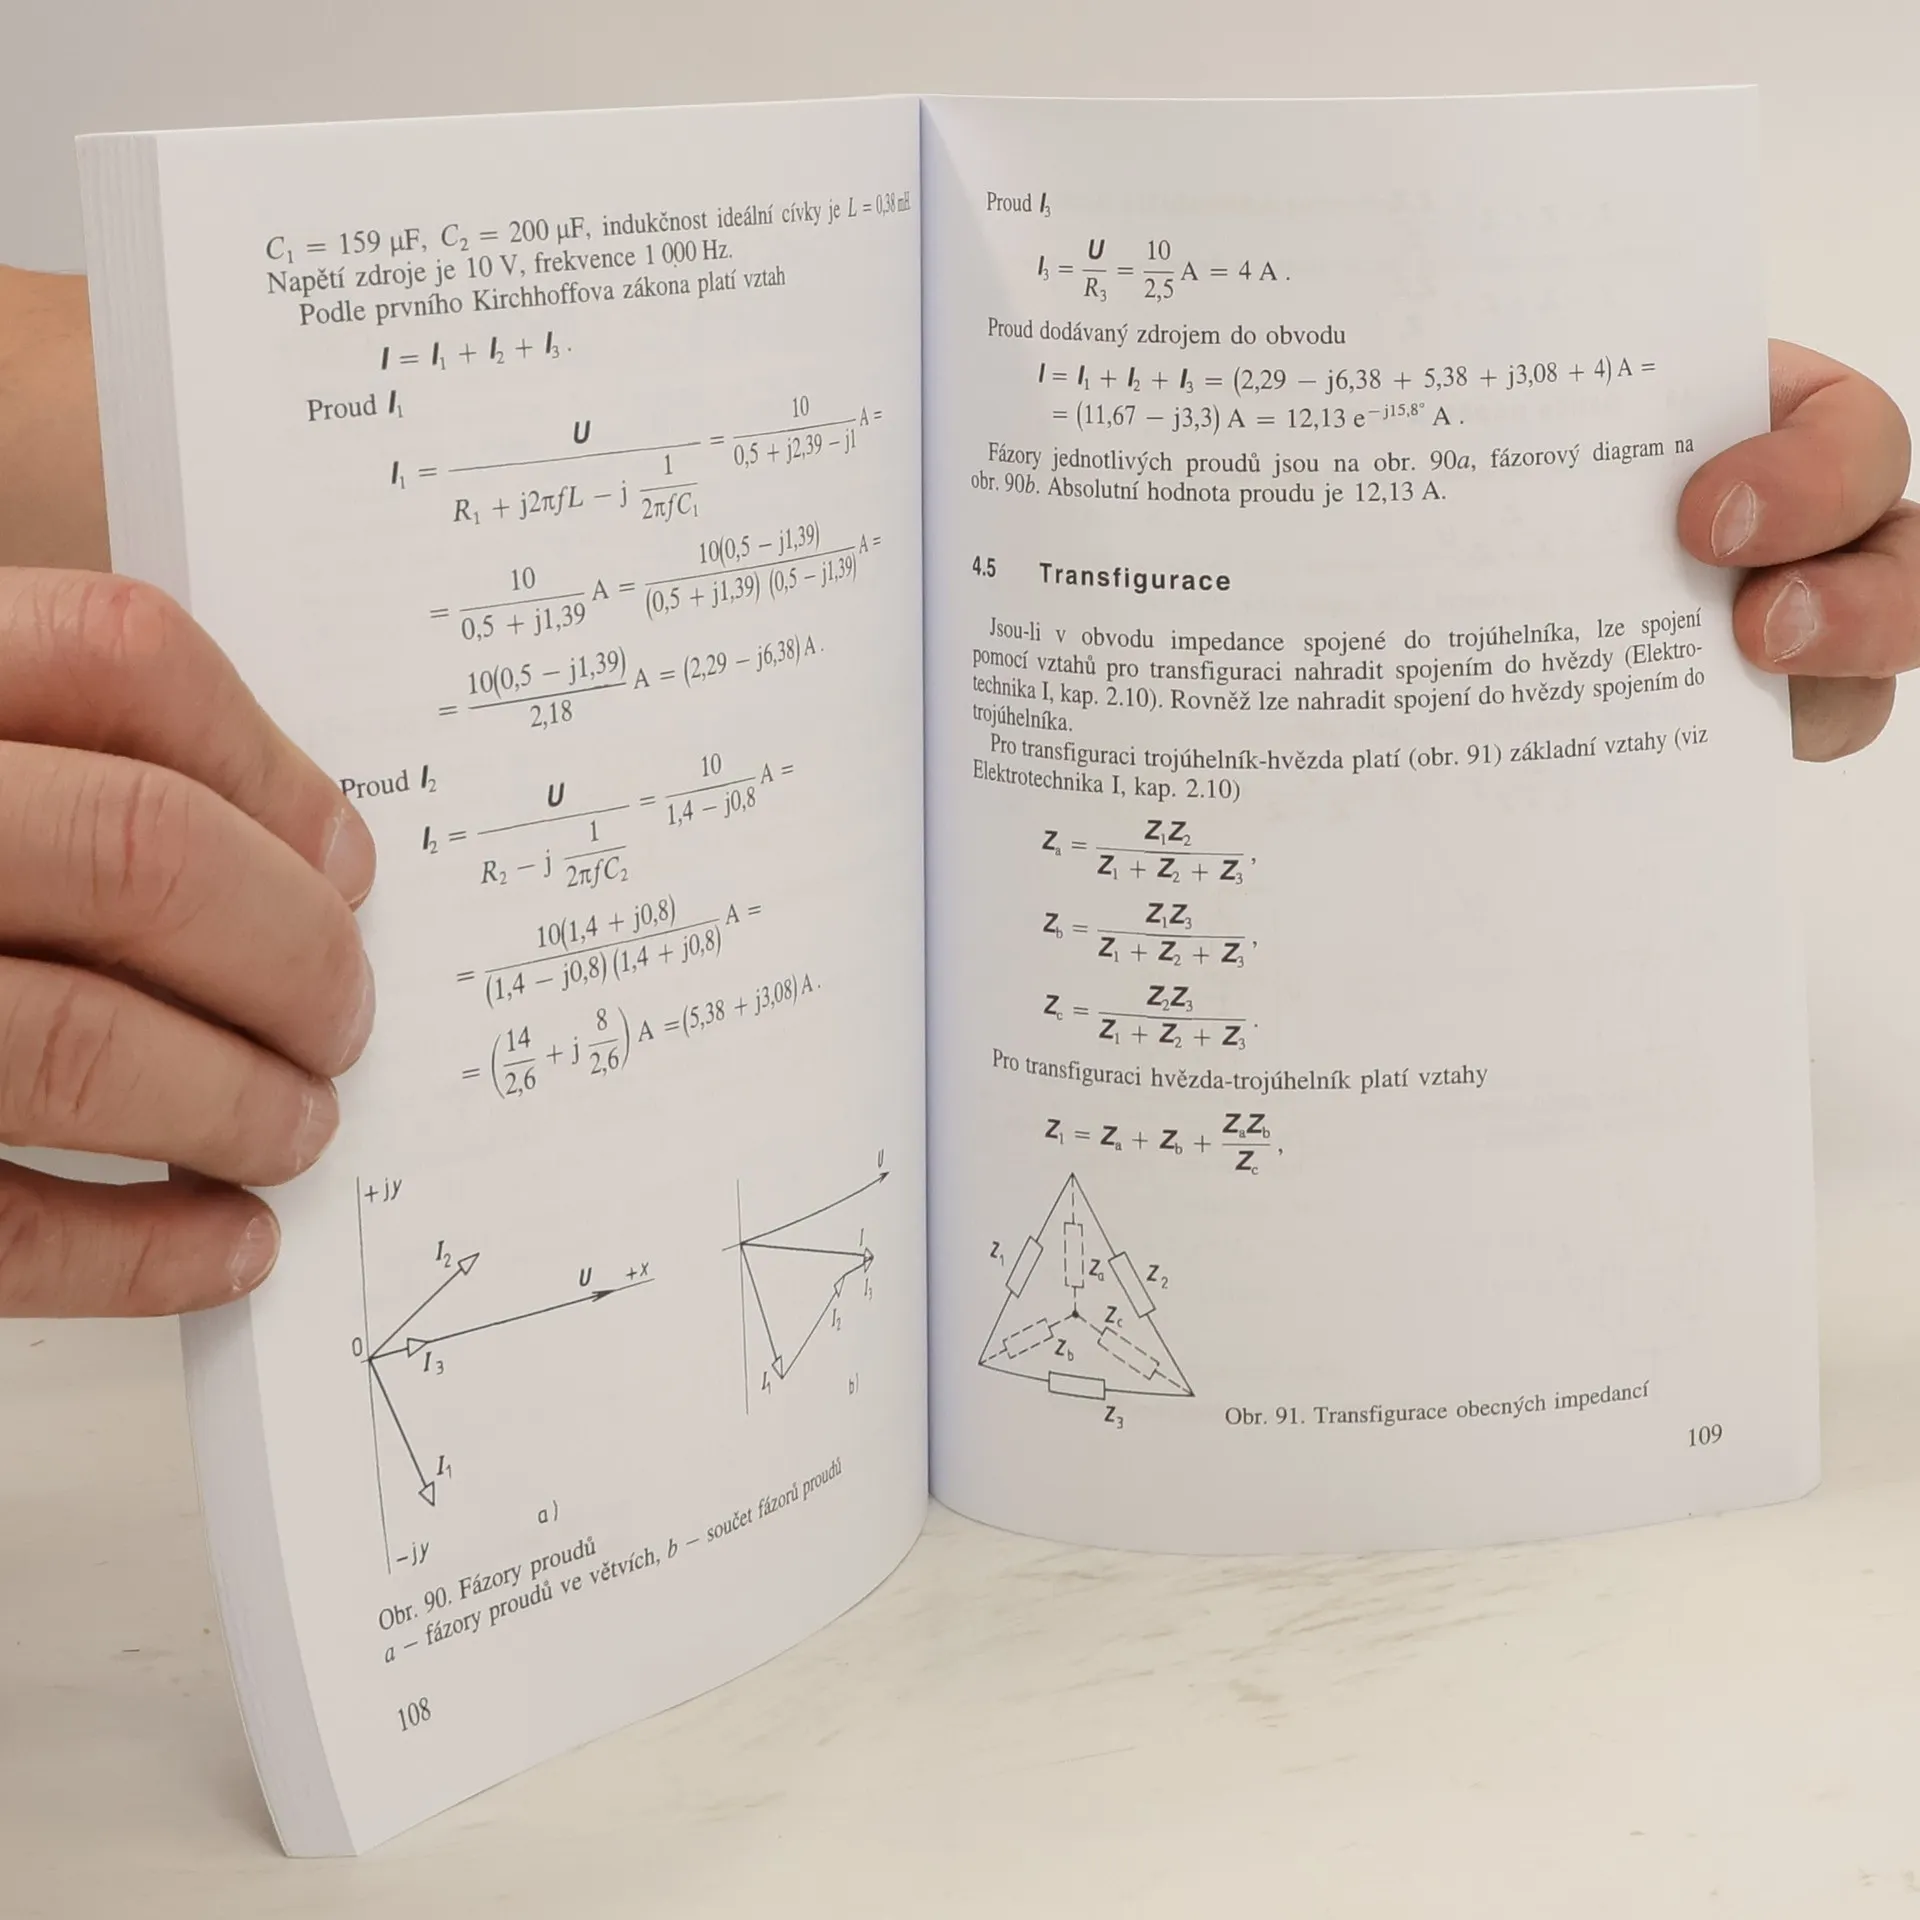 C₁ = 159 µF, C₂ = 200 µF, indukčnost ideální cívky je L = 0,38 mH
Napětí zdroje je 10 V, frekvence 1 000 Hz.
Podle prvního Kirchhoffova zákona platí vztah
I = I₁ + I₂ + I₃ .
Proud I₁
I₁ = U / (R₁ + j2πfL − j 1/(2πfC₁)) = 10 / (0,5 + j2,39 − j1) A =
= 10 / (0,5 + j1,39) A = 10(0,5 − j1,39) / ((0,5 + j1,39) (0,5 − j1,39)) A =
= 10(0,5 − j1,39) / 2,18 A = (2,29 − j6,38) A .
Proud I₂
I₂ = U / (R₂ − j 1/(2πfC₂)) = 10 / (1,4 − j0,8) A =
= 10(1,4 + j0,8) / ((1,4 − j0,8) (1,4 + j0,8)) A =
= (14/2,6 + j 8/2,6) A = (5,38 + j3,08) A .
+jy
I₂
U +x
0
I₃
I₁
−jy
a)
U
I
I₃
I₂
I₁
b)
Obr. 90. Fázory proudů
a — fázory proudů ve větvích, b — součet fázorů proudů
108
Proud I₃
I₃ = U/R₃ = 10/2,5 A = 4 A .
Proud dodávaný zdrojem do obvodu
I = I₁ + I₂ + I₃ = (2,29 − j6,38 + 5,38 + j3,08 + 4) A =
= (11,67 − j3,3) A = 12,13 e^(−j15,8°) A .
Fázory jednotlivých proudů jsou na obr. 90a, fázorový diagram na
obr. 90b. Absolutní hodnota proudu je 12,13 A.
4.5 Transfigurace
Jsou-li v obvodu impedance spojené do trojúhelníka, lze spojení
pomocí vztahů pro transfiguraci nahradit spojením do hvězdy (Elektro-
technika I, kap. 2.10). Rovněž lze nahradit spojení do hvězdy spojením do
trojúhelníka.
Pro transfiguraci trojúhelník-hvězda platí (obr. 91) základní vztahy (viz
Elektrotechnika I, kap. 2.10)
Zₐ = Z₁Z₂ / (Z₁ + Z₂ + Z₃) ,
Z_b = Z₁Z₃ / (Z₁ + Z₂ + Z₃) ,
Z_c = Z₂Z₃ / (Z₁ + Z₂ + Z₃) .
Pro transfiguraci hvězda-trojúhelník platí vztahy
Z₁ = Zₐ + Z_b + ZₐZ_b / Z_c ,
Z₁
Zₐ
Z₂
Z_c
Z_b
Z₃
Obr. 91. Transfigurace obecných impedancí
109